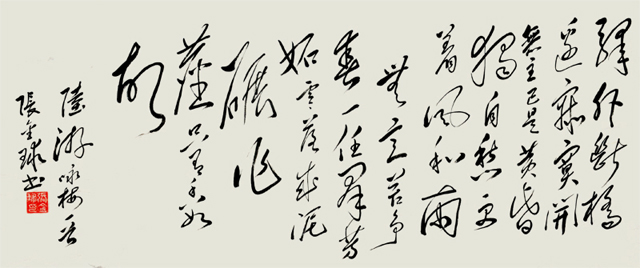 驛外斷橋
邊寂寞開
無主已是黄昏
獨自愁更
着風和雨
無意苦争
春一任群芳
妬零落成泥
碾作
塵只有香如
故
陸游咏梅
張金球書